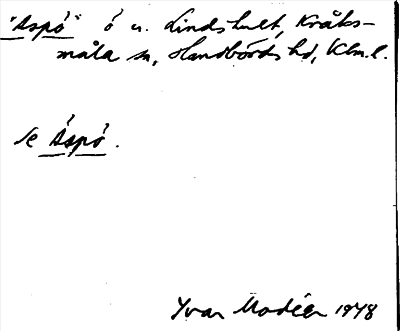 "Aspö" ö u. Lindshult, Kråks-
måla sn, Handbörds hd, Klm.l.
Se Åspö.
Yvar Modéer 1978